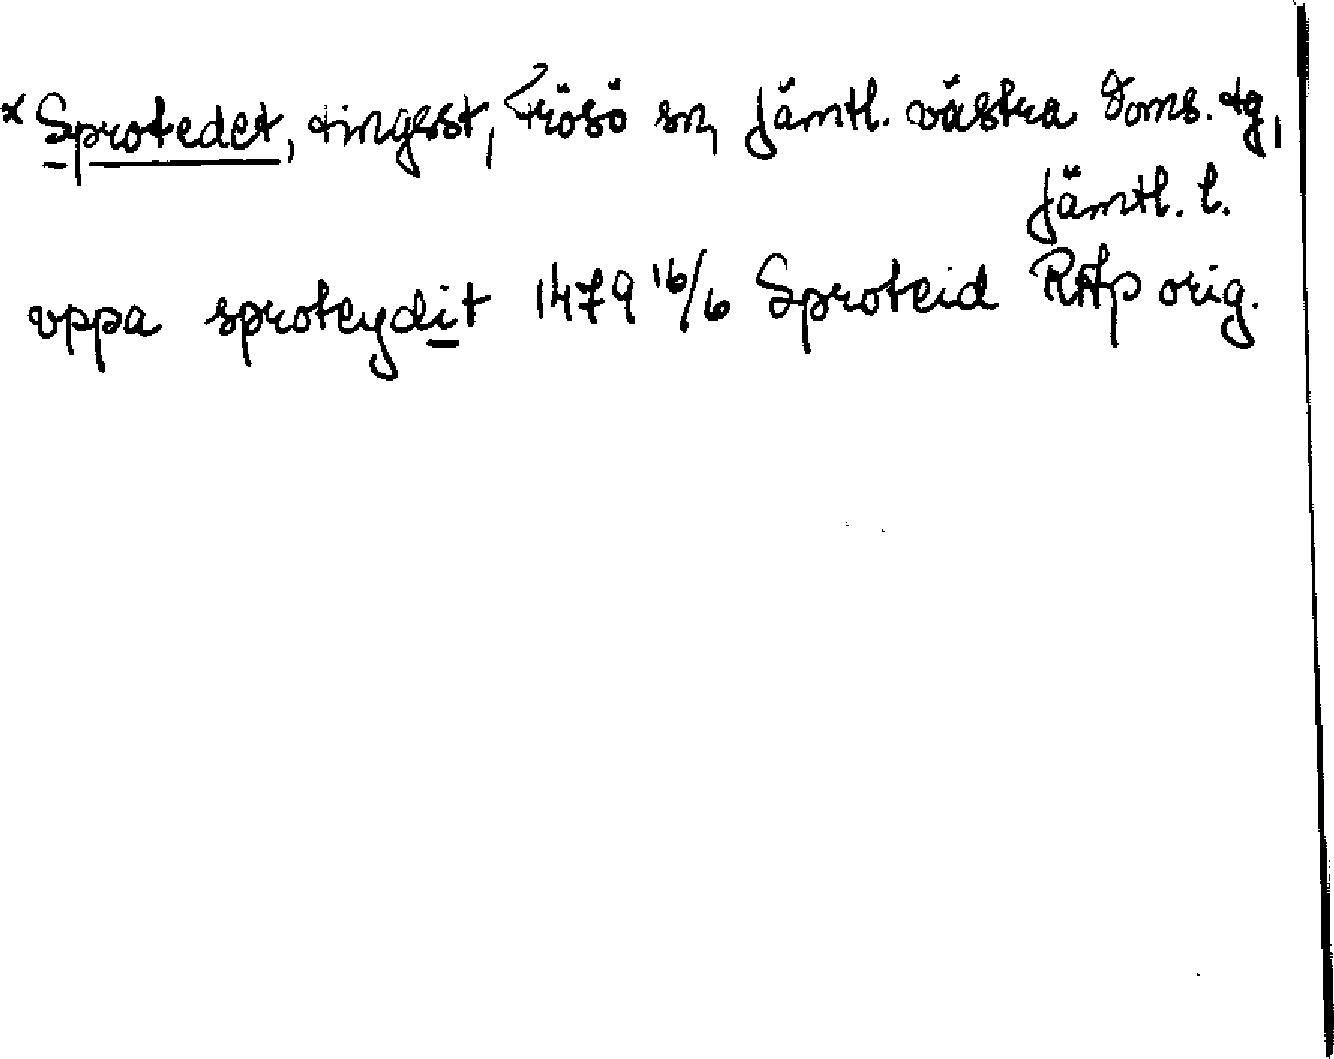 × Sprotedet, tingsst, Frösö sn, Jämtl. västra doms. tg,
Jämtl. l.
vppa sproteydit 1479 16/6 Sproteid RAp orig.